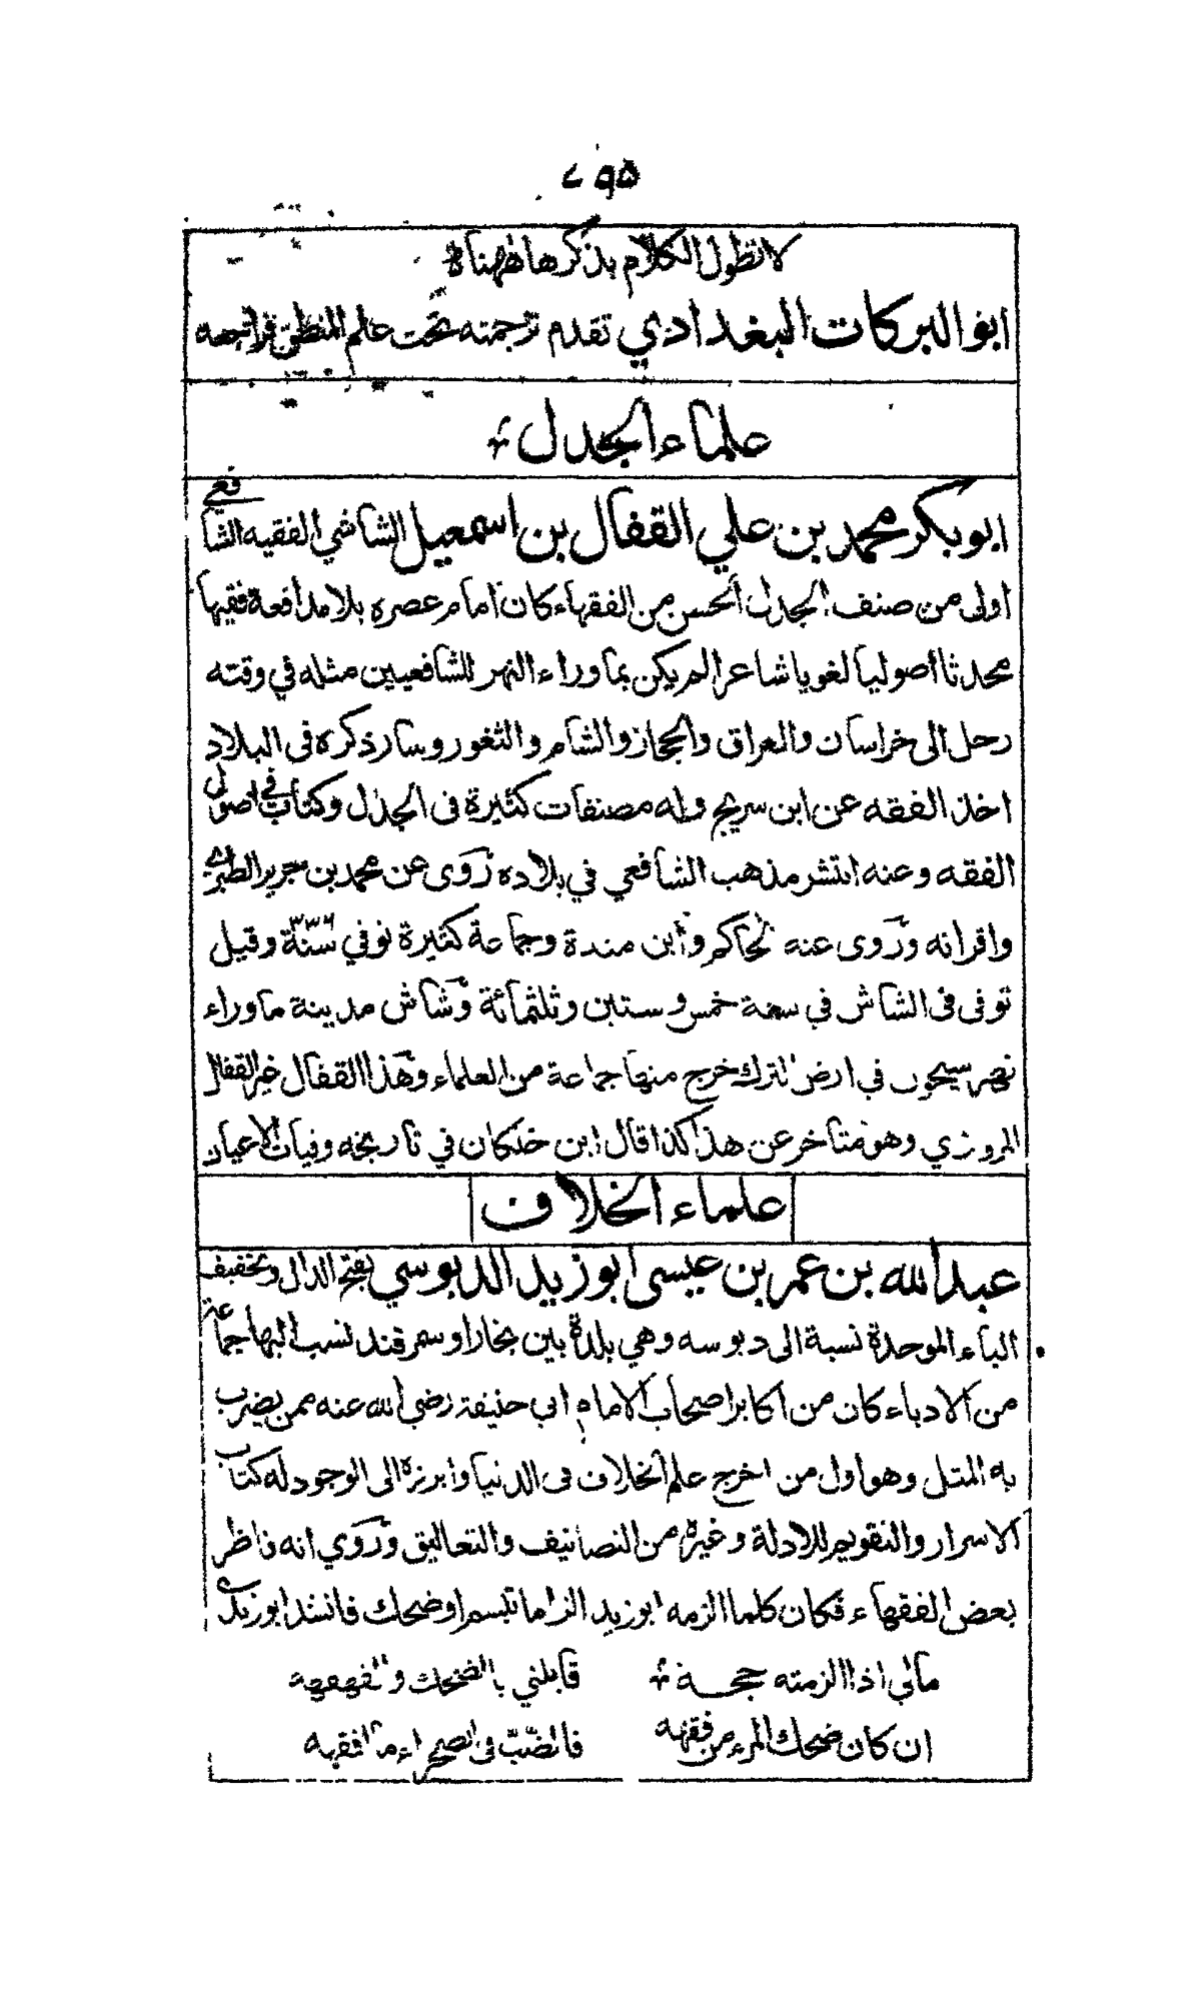 ٧٩٥
لا نطول الكلام بذكرها ههنا
ابو البركات البغدادي تقدم ترجمته تحت علم المنطق فراجعه
علماء الجدل
ابو بكر محمد بن علي القفال بن اسمعيل الشاشي الفقيه الشافعي
اولى من صنف الجدل الحسن من الفقهاء كان امام عصره بلا مدافعة فقيها
محدثا اصوليا لغويا شاعرا لم يكن بما وراء النهر للشافعيين مثله في وقته
رحل الى خراسان والعراق والحجاز والشام والثغور وسار ذكره فى البلاد
اخذ الفقه عن ابن سريج وله مصنفات كثيرة فى الجدل وكتاب في اصول
الفقه وعنه انتشر مذهب الشافعي في بلاده روى عن محمد بن جرير الطبري
واقرانه وروى عنه الحاكم وابن مندة وجماعة كثيرة توفي وقيل
توفى فى الشاش في سنة خمس وستين وثلثمائة وشاش مدينة ما وراء
نهر سيحون في ارض الترك خرج منها جماعة من العلماء وهذا القفال غير القفال
المروزي وهو متاخر عن هذا كذا قال ابن خلكان في تاريخه وفيات الاعيان
علماء الخلاف
عبد الله بن عمر بن عيسى ابو زيد الدبوسي بفتح الدال وتخفيف
الباء الموحدة نسبة الى دبوسه وهي بلدة بين بخارا وسمرقند نسب اليها جماعة
من الادباء كان من اكابر اصحاب الامام ابي حنيفة رضي الله عنه ممن يضرب
به المثل وهو اول من اخرج علم الخلاف فى الدنيا وابرزه الى الوجود له كتاب
الاسرار والتقويم للادلة وغيره من التصانيف والتعاليق وروي انه ناظر
بعض الفقهاء فكان كلما الزمه ابو زيد الزاما تبسم او ضحك فانشد ابو زيد
مالي اذا الزمته حجة قابلني بالضحك والقهقهه
ان كان ضحك المرء من فقهه فالضب فى الصحراء ما افقهه